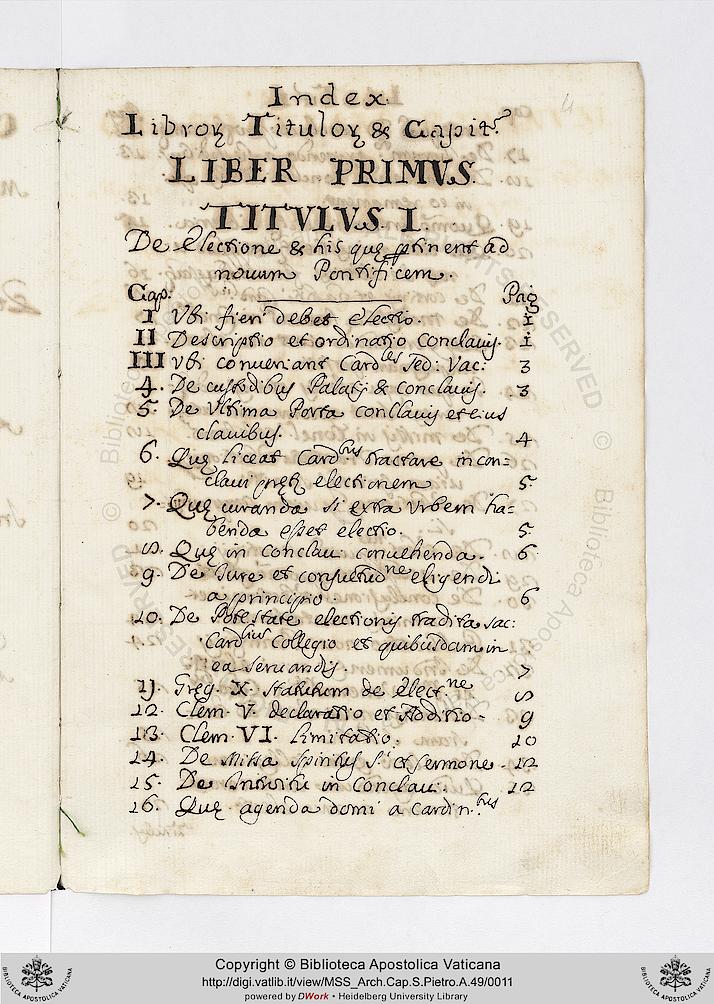 4
Index.
Libroꝝ Tituloꝝ & Capit.ᵐ
LIBER PRIMVS.
TITVLVS. I.
De Electione & his quę ꝑtinent ad
nouum Pontificem.
Cap. Pag
I Vbi fieri debet electio. 1
II Descriptio et ordinatio conclauis. 1
III Vbi conueniant Cardˡᵉˢ Sed: Vac: 3
4. De custodibus Palatij & conclauis. 3
5. De Vltima Porta conclauis et eius
clauibus. 4
6. Quę liceat Cardᵇᵘˢ tractare in con=
claui electionem 5
7. Quę curanda si extra Vrbem ha=
benda esset electio. 5
8. Quę in conclau: conuehenda. 6
9. De Iure et consuetudⁿᵉ eligendi
a principio 6
10. De Potestate electionis tradita sac:
Cardˡⁱᵘᵐ Collegio et quibusdam in
ea seruandis. 7
11. Greg. X. statutum de elect.ⁿᵉ 8
12. Clem. V. declaratio et Additio- 9
13. Clem. VI. limitatio. 10
14. De Missa Spiritus S.ᵗⁱ et sermone. 12
15. De Introitu in Conclaui. 12
16. Quę agenda domi a Cardin.ᵇᵘˢ
Copyright © Biblioteca Apostolica Vaticana
http://digi.vatlib.it/view/MSS_Arch.Cap.S.Pietro.A.49/0011
powered by DWork • Heidelberg University Library